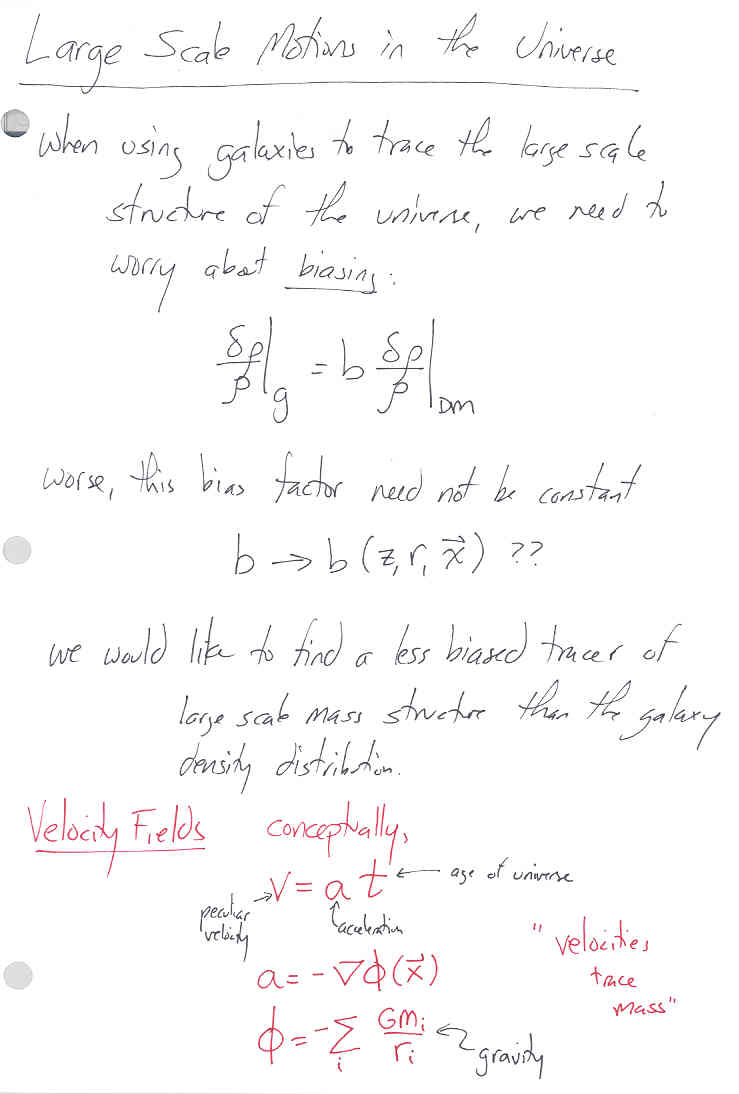 Large Scale Motions in the Universe
When using galaxies to trace the large scale
structure of the universe, we need to
worry about biasing:
δρ/ρ|g = b δρ/ρ|DM
worse, this bias factor need not be constant
b → b(z, r, x⃗) ??
we would like to find a less biased tracer of
large scale mass structure than the galaxy
density distribution.
Velocity Fields conceptually,
v = a t ← age of universe
peculiar velocity
acceleration
a = -∇ϕ(x⃗)
"velocities
trace
mass"
ϕ = -∑i Gmi/ri
gravity